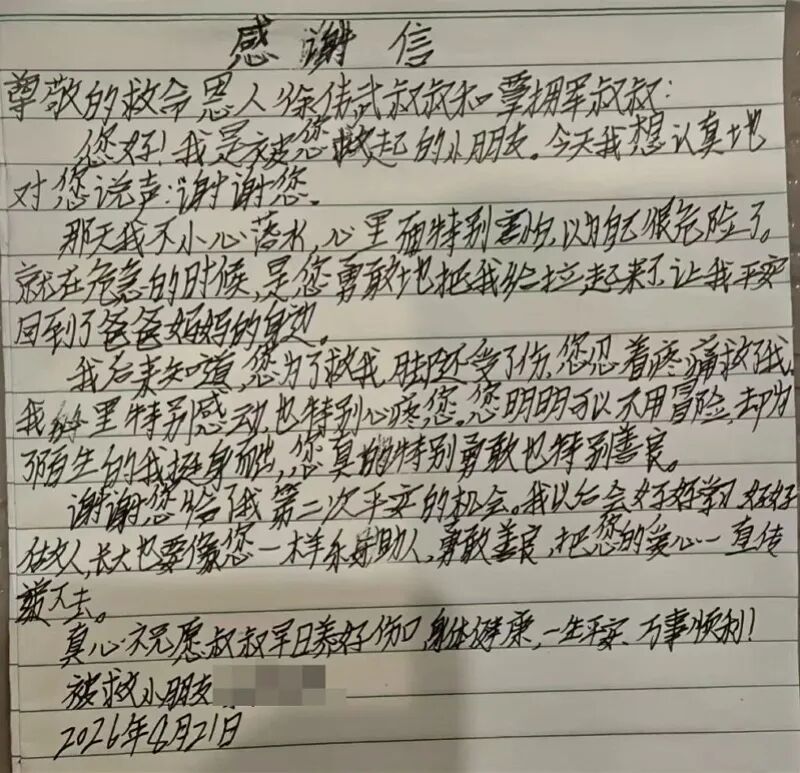 感谢信
尊敬的救命恩人徐伟武叔叔和覃拥军叔叔:
您好!我是被您救起的小朋友。今天我想认真地
对您说声:谢谢您。
那天我不小心落水,心里面特别害怕,以为自己很危险了。
就在危急的时候,是您勇敢地把我给拉起来了,让我平安
回到了爸爸妈妈的身边。
我后来知道,您为了救我,脚还受了伤,您忍着疼痛救了我,
我心里特别感动,也特别心疼您。您明明可以不用冒险,却为
了陌生的我挺身而出,您真的特别勇敢也特别善良。
谢谢您给了我第二次平安的机会。我以后会好好学习,好好
做人,长大也要像您一样乐于助人,勇敢善良,把您的爱心一直传
递下去。
真心祝愿叔叔早日养好伤口,身体健康,一生平安、万事顺利!
被救小朋友
2026年8月21日